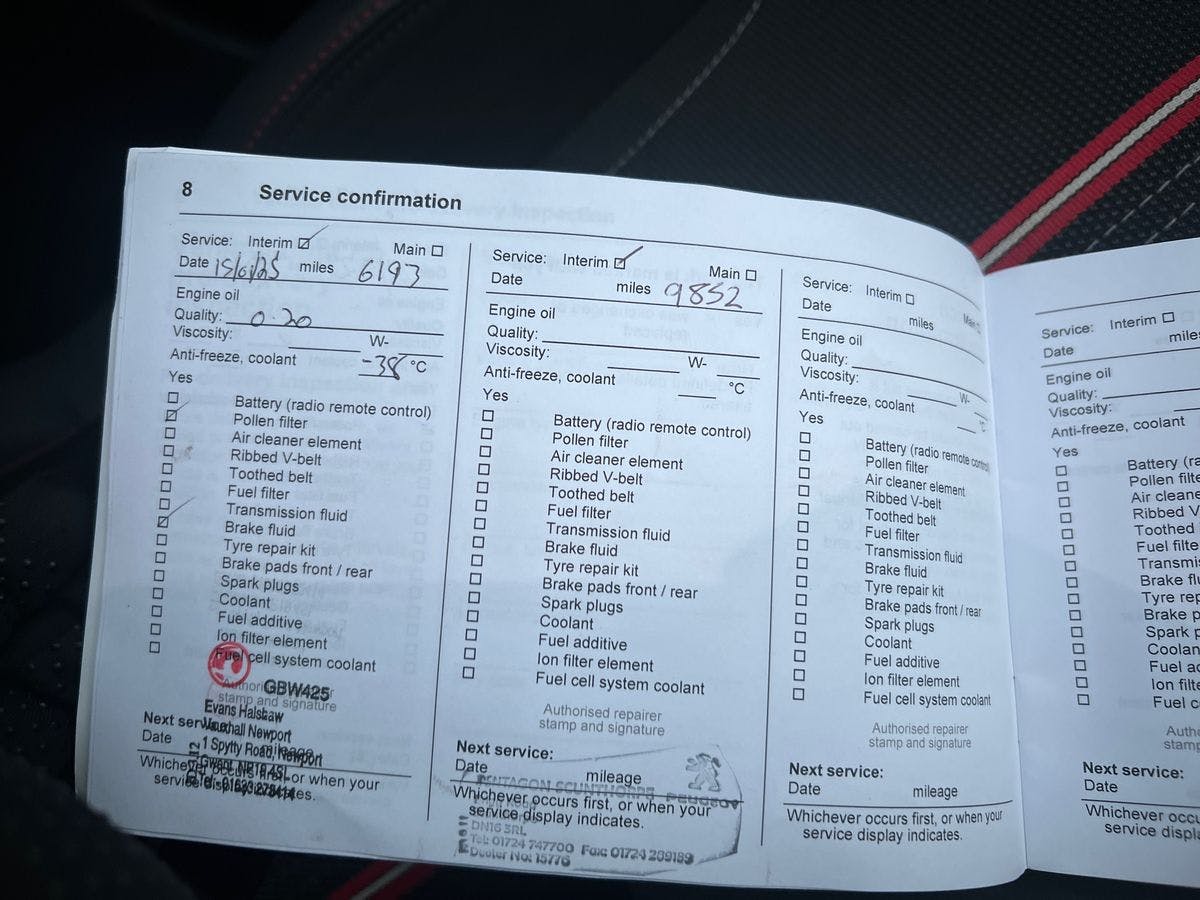 8 Service confirmation
Service: Interim Main
Date 15/6/25 miles 6193
Engine oil
Quality: 0.20
Viscosity: W-
Anti-freeze, coolant -38 °C
Yes
Battery (radio remote control)
Pollen filter
Air cleaner element
Ribbed V-belt
Toothed belt
Fuel filter
Transmission fluid
Brake fluid
Tyre repair kit
Brake pads front / rear
Spark plugs
Coolant
Fuel additive
Ion filter element
Fuel cell system coolant
GBW425
stamp and signature
Evans Halshaw
Vauxhall Newport
1 Spytty Road, Newport
Gwent. NP19 4SL
Next service:
Date mileage
Whichever occurs first, or when your
service display indicates.
Service: Interim Main
Date miles 9852
Engine oil
Quality:
Viscosity: W-
Anti-freeze, coolant °C
Yes
Battery (radio remote control)
Pollen filter
Air cleaner element
Ribbed V-belt
Toothed belt
Fuel filter
Transmission fluid
Brake fluid
Tyre repair kit
Brake pads front / rear
Spark plugs
Coolant
Fuel additive
Ion filter element
Fuel cell system coolant
Authorised repairer
stamp and signature
Next service:
Date mileage
PENTAGON SCUNTHORPE PEUGEOT
Whichever occurs first, or when your
service display indicates.
DN16 3RL
Tel: 01724 747700 Fax: 01724 289189
Dealer No: 15776
Service: Interim Main
Date miles
Engine oil
Quality:
Viscosity: W-
Anti-freeze, coolant °C
Yes
Battery (radio remote control)
Pollen filter
Air cleaner element
Ribbed V-belt
Toothed belt
Fuel filter
Transmission fluid
Brake fluid
Tyre repair kit
Brake pads front / rear
Spark plugs
Coolant
Fuel additive
Ion filter element
Fuel cell system coolant
Authorised repairer
stamp and signature
Next service:
Date mileage
Whichever occurs first, or when your
service display indicates.
Service: Interim
Date miles
Engine oil
Quality:
Viscosity:
Anti-freeze, coolant
Yes
Battery (ra
Pollen filte
Air clean
Ribbed V
Toothed
Fuel filte
Transmis
Brake flu
Tyre rep
Brake p
Spark p
Coolan
Fuel ad
Ion filte
Fuel c
Auth
stamp
Next service:
Date
Whichever occu
service displ